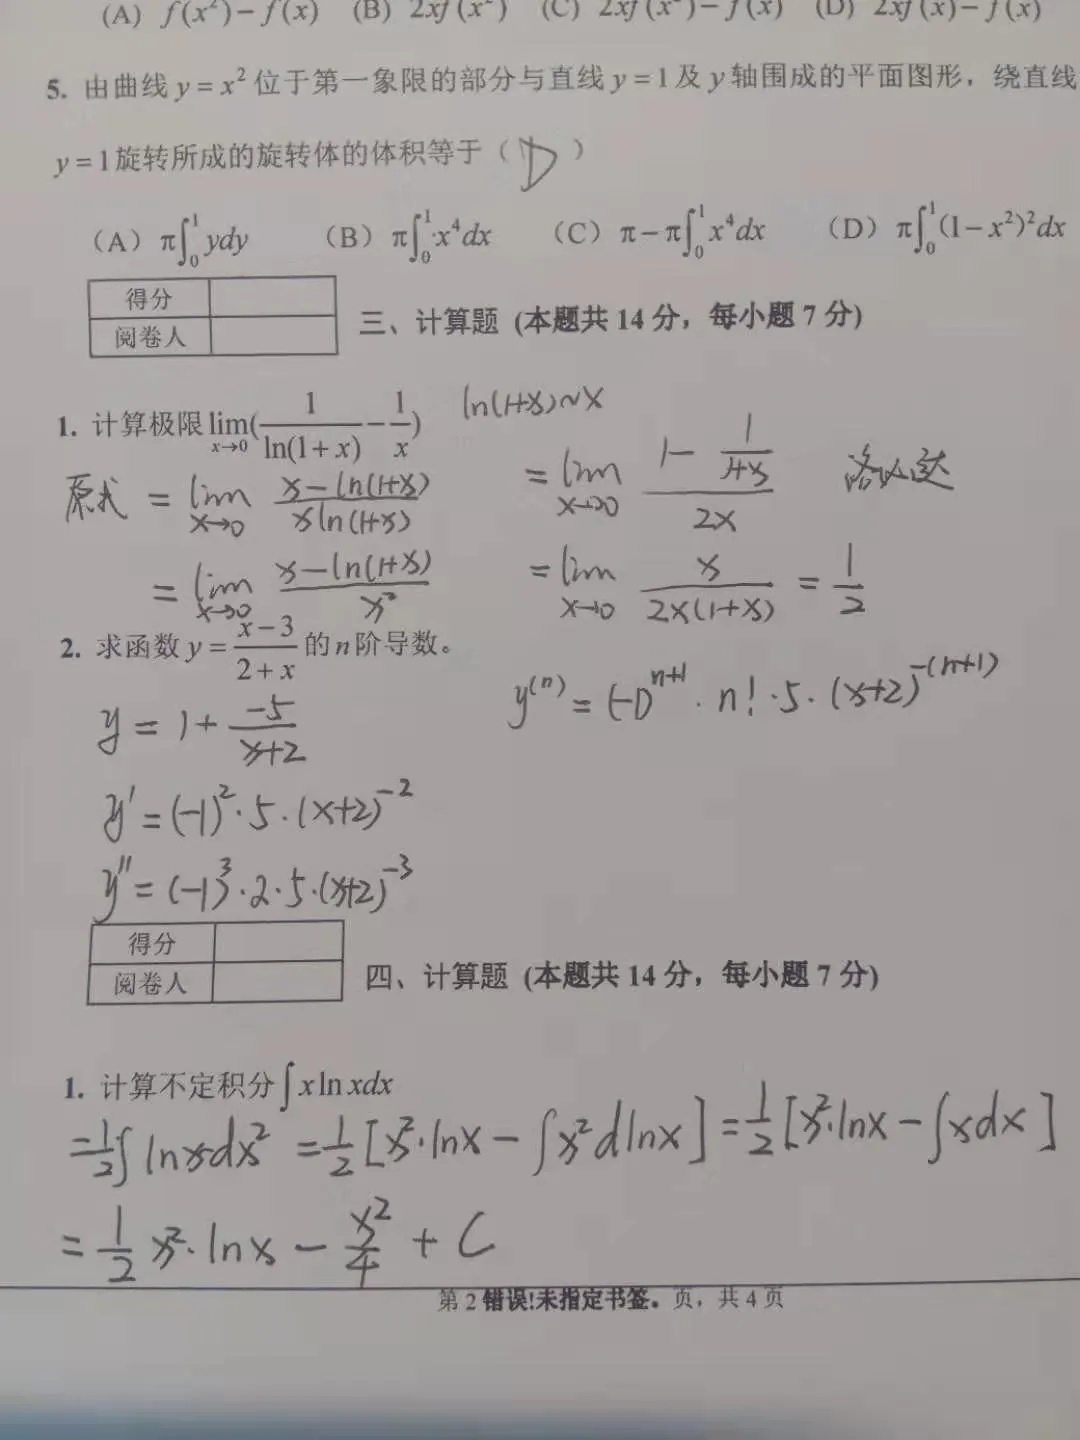 (A) f(x²)−f(x) (B) 2xf(x²) (C) 2xf(x²)−f(x) (D) 2xf(x)−f(x)
5. 由曲线 y=x² 位于第一象限的部分与直线 y=1 及 y 轴围成的平面图形，绕直线
y=1 旋转所成的旋转体的体积等于（ D ）
（A）π∫₀¹ ydy （B）π∫₀¹ x⁴dx （C）π−π∫₀¹ x⁴dx （D）π∫₀¹ (1−x²)²dx
得分
阅卷人
三、计算题 (本题共 14 分，每小题 7 分)
1. 计算极限 lim_{x→0}(1/ln(1+x) − 1/x) ln(1+x)~x
原式 = lim_{x→0} (x−ln(1+x))/(xln(1+x))
= lim_{x→0} (x−ln(1+x))/x²
= lim_{x→0} (1−1/(1+x))/(2x) 洛必达
= lim_{x→0} x/(2x(1+x)) = 1/2
2. 求函数 y=(x−3)/(2+x) 的 n 阶导数。
y = 1+ (−5)/(x+2)
y' = (−1)²·5·(x+2)⁻²
y'' = (−1)³·2·5·(x+2)⁻³
y⁽ⁿ⁾ = (−1)ⁿ⁺¹·n!·5·(x+2)^{−(n+1)}
得分
阅卷人
四、计算题 (本题共 14 分，每小题 7 分)
1. 计算不定积分 ∫xln xdx
= 1/2 ∫lnxdx² = 1/2 [x²·lnx − ∫x²dlnx] = 1/2 [x²·lnx − ∫xdx]
= 1/2 x²·lnx − x²/4 + C
第 2 错误!未指定书签。页，共 4 页